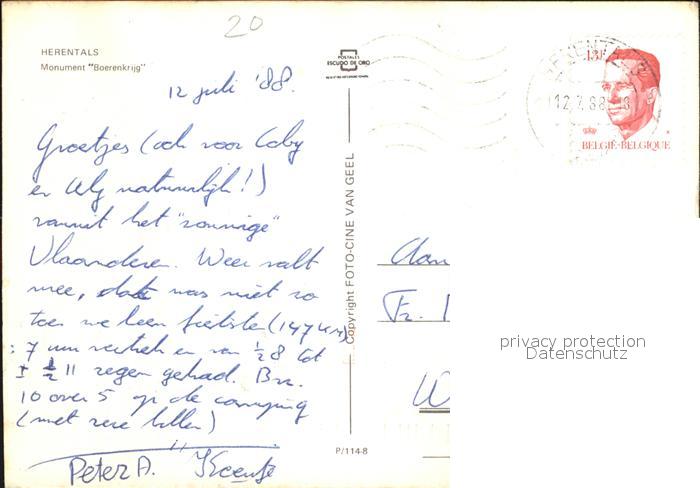 20
HERENTALS
Monument "Boerenkrijg"
POSTALES
ESCUDO DE ORO
12 juli '88.
Groetjes (ook voor Coby
en Aly natuurlijk!)
vanuit het "zonnige"
Vlaanderen. Weer valt
mee, dat was niet zo
toen we heen fietsten (147 KM)
: 7 uur vertrek en van ½8 tot
± ½ 11 regen gehad. Br.
10 over 5 op de camping
(met zere billen)
Peter A.
Copyright FOTO-CINE VAN GEEL
P/114-8
13F
12.7.88
BELGIË-BELGIQUE
Aan
Fr.
W
privacy protection
Datenschutz